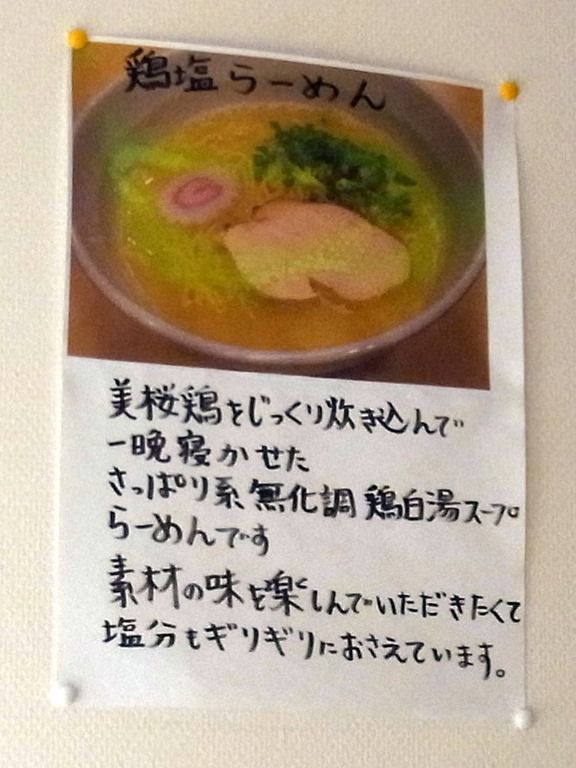 鶏塩らーめん
美桜鶏をじっくり炊き込んで
一晩寝かせた
さっぱり系無化調鶏白湯スープ
らーめんです
素材の味を楽しんでいただきたくて
塩分もギリギリにおさえています。